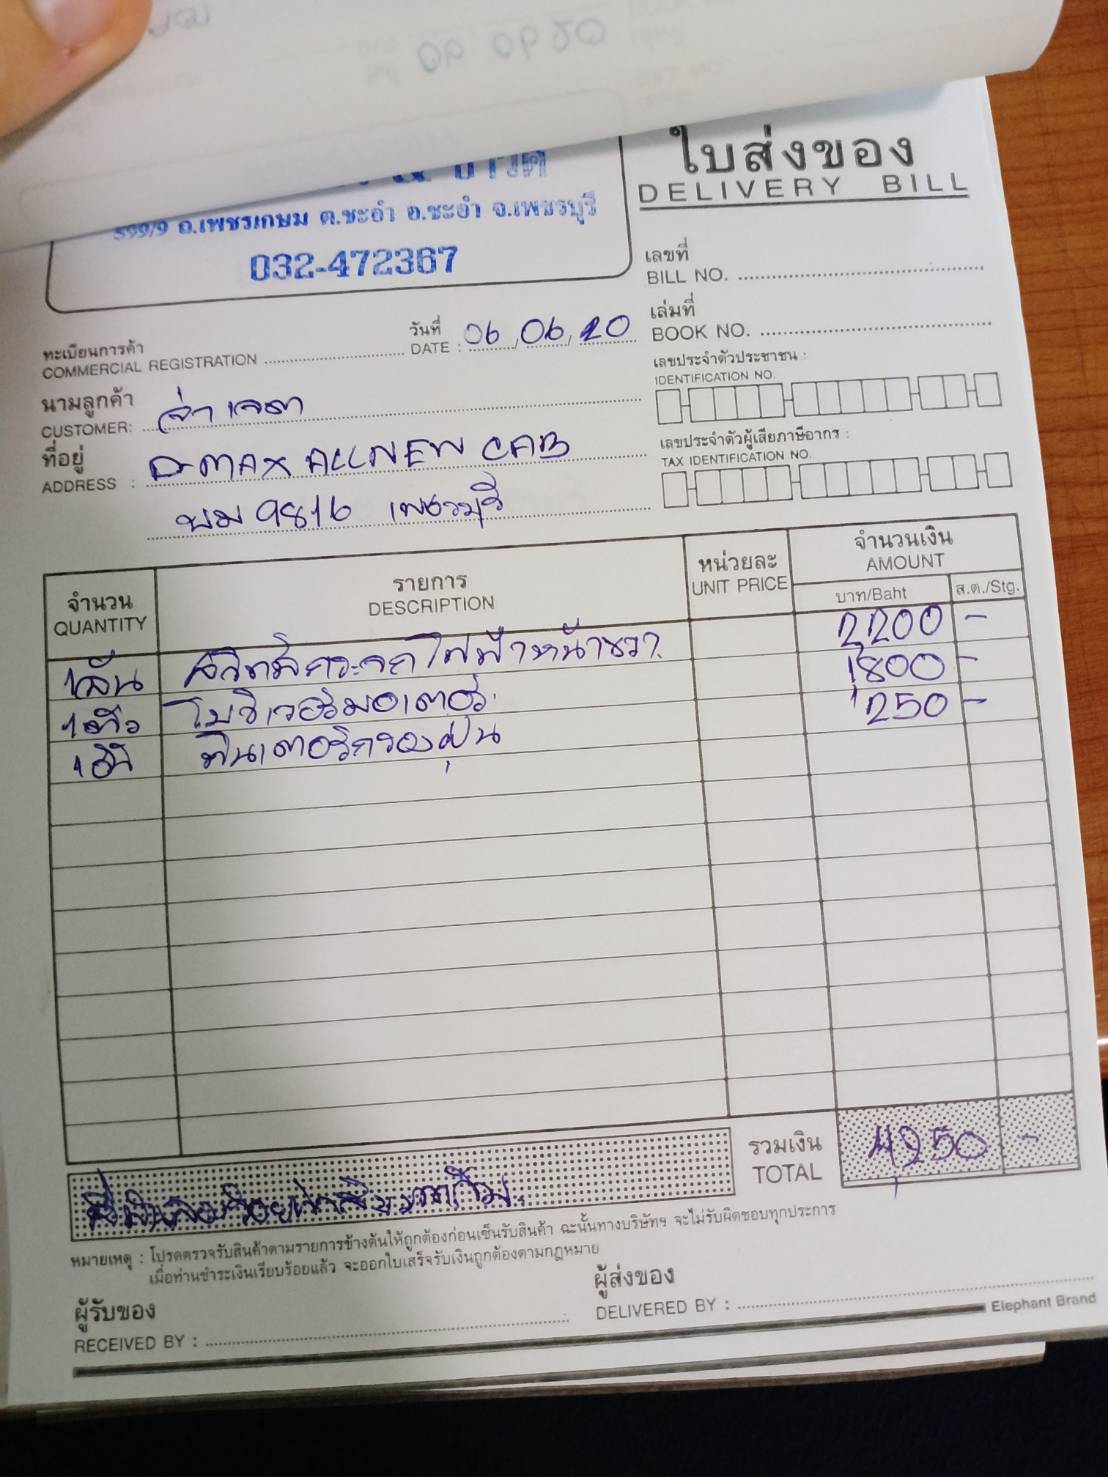 ใบส่งของ
DELIVERY BILL
599/9 ถ.เพชรเกษม ต.ชะอำ อ.ชะอำ จ.เพชรบุรี
032-472367
เลขที่
BILL NO.
เล่มที่
BOOK NO.
ทะเบียนการค้า
COMMERCIAL REGISTRATION
วันที่
DATE : 06, 06, 20
เลขประจำตัวประชาชน :
IDENTIFICATION NO.
นามลูกค้า
CUSTOMER: จ่าเจตา
ที่อยู่
ADDRESS : D-MAX ALLNEW CAB
เลขประจำตัวผู้เสียภาษีอากร :
TAX IDENTIFICATION NO.
9816 เพชรบุรี
จำนวน
QUANTITY
รายการ
DESCRIPTION
หน่วยละ
UNIT PRICE
จำนวนเงิน
AMOUNT
บาท/Baht
ส.ต./Stg.
1อัน สวิทช์กระจกไฟฟ้าหน้าขวา 2,200 -
1ตัว โบเวอร์มอเตอร์ 1,800 -
1อัน ฟิลเตอร์กรองฝุ่น 250 -
รวมเงิน
TOTAL 4,250 -
หมายเหตุ : โปรดตรวจรับสินค้าตามรายการข้างต้นให้ถูกต้องก่อนเซ็นรับสินค้า ฉะนั้นทางบริษัทฯ จะไม่รับผิดชอบทุกประการ
เมื่อท่านชำระเงินเรียบร้อยแล้ว จะออกใบเสร็จรับเงินถูกต้องตามกฎหมาย
ผู้รับของ
RECEIVED BY :
ผู้ส่งของ
DELIVERED BY :
Elephant Brand